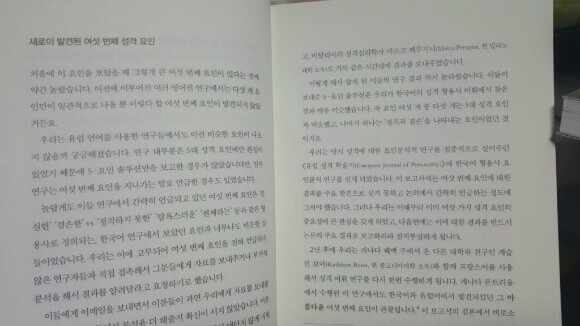 새로이 발견된 여섯 번째 성격 요인
처음에 이 요인을 보았을 때 그렇게 큰 여섯 번째 요인이 있다는 것에
약간 놀랐습니다. 이전에 이루어진 여러 영어권 연구에서는 다섯 개 요
인만이 일관적으로 나올 뿐 이렇다 할 여섯 번째 요인이 발견되지 않았
거든요.
우리는 유럽 언어를 사용한 연구들에서도 이런 비슷한 요인이 나오
지 않을까 궁금해졌습니다. 연구 대부분은 5대 성격 요인에만 관심이
있었기 때문에 5-요인 솔루션만을 보고한 경우가 많았습니다만,
연구는 여섯 번째 요인을 지나가는 말로 언급한 경우도 있었습니다.
놀랍게도 이들 연구에서 간략히 언급되고 있던 여섯 번째 요인은 '진
실한' '겸손한' vs '정직하지 못한' '탐욕스러운' '젠체하는' 등과 같은 형
용사로 정의되는, 한국어 연구에서 보았던 요인과 너무나도 비슷한 것
들이었습니다. 우리는 이에 고무되어 여섯 번째 요인을 언급
않은 연구자들과 직접 접촉해서 그분들에게 자료를 보내주거나 부가적
분석을 해서 결과를 알려달라고 요청하기로 했습니다.
이들에게 이메일을 보내면서 이분들이 과연 우리에게 자료를 보내줄
분석을 더 해줄지 확신이 서지 않았습니다.
고, 이탈리아의 성격심리학자 마르코 페루기니(Marco Perugini, 현 밀라노
대학 소속)도 거의 같은 시간대에 결과를 보내주었습니다.
이렇게 해서 알게 된 이들의 연구 결과 역시 놀라웠습니다. 이들이
보내준 6-요인 솔루션은 우리가 한국어의 성격 형용사 어휘에서 찾은
것과 매우 비슷했습니다. 즉 요인 여섯 개 중 다섯 개는 5대 성격 요인
과 비슷했고, 나머지 하나는 '정직과 겸손'을 나타내는 요인이었던 것
이지요.
우리는 당시 성격에 대한 요인분석적 연구를 집중적으로 실어주던
《유럽 성격 학술지(European Journal of Personality)》에 한국어 형용사 요
인분석 연구를 싣게 되었습니다. 이 보고서에는 여섯 번째 요인에 대한
결과를 주요 발견으로 싣지 못하고 논의에서 간략히 언급하는 정도에
그쳐야 했습니다. 그러나 우리는 이때부터 이미 여섯 가지 성격 요인의
중요성에 큰 관심을 갖게 되었고, 다음번에는 이에 대한 결과를 반드시
논문의 주요 결과로 보고하리라 절치부심하게 됩니다.
2년 후에 우리는 캐나다 퀘벡 주에서 온 다른 대학원 친구인 캐슬
린 보아(Kathleen Boies, 현 콩코디아대학 소속)와 함께 프랑스어를 사용
해서 성격 어휘 연구를 다시 한번 수행하게 됩니다. 캐나다 몬트리올
에서 수행된 이 연구에서도 한국어와 유럽어에서 발견되었던 그 아
름다운 여섯 번째 요인이 관찰됩니다. 이 논문의 결론에서 비로소